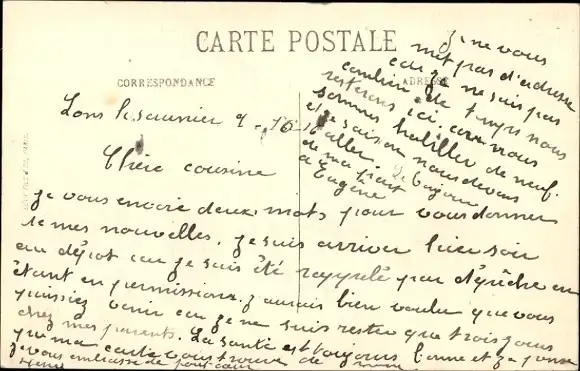 CARTE POSTALE
CORRESPONDANCE
ADRESSE
Lons le saunier 9 - 16
Chère cousine
je vous envoie deux mots pour vous donner
de mes nouvelles, je suis arriver hier soir
au dépot car je suis été rappelé par dépêche en
étant en permission, j'aurais bien voulu que vous
puissiez venir car je ne suis rester que trois jours
chez mes parents. La santé est toujours bonne et je pense
que ma carte vous trouve de
je vous embrasse de tout cœur
je ne vous
mit pas d'adresse
car je ne sais pas
combien de temps nous
resterons ici, car nous
sommes habiller de neuf
et je sais nous devons
aller
de ma part
a Eugène